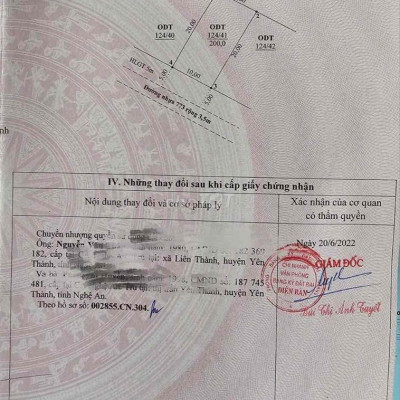 2
ODT
124/40
20,00
ODT
124/41
200,0
20,00
ODT
124/42
4
10,00
3
5,00
5,00
HLGT 5m
Đường nhựa 773 rộng 3,5m
IV. Những thay đổi sau khi cấp giấy chứng nhận
Nội dung thay đổi và cơ sở pháp lý
Xác nhận của cơ quan
có thẩm quyền
Chuyển nhượng quyền sử dụng
Ông: Nguyễn Văn
182, cấp xã Liên Thành, huyện Yên
Thành,
Và bà CMND số: 187 745
481, huyện Yên
Thành, tỉnh Nghệ An.
Theo hồ sơ số: 002855.CN.304.
Ngày 20/6/2022
GIÁM ĐỐC
CHI NHÁNH
VĂN PHÒNG
ĐĂNG KÝ ĐẤT ĐAI
Thị Ánh Tuyết